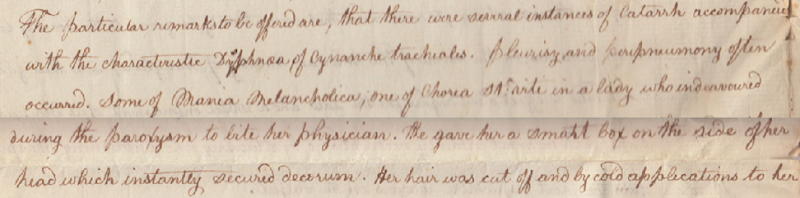 The particular remarks to be offered are, that there were several instances of Catarrh accompanied
with the characteristic Dysphnœa, of Cynanche trachealis. Pleurisy and peripneumony often
occurred. Some of Mania Melancholica; one of Chorea St. viti in a lady who indeavoured
during the paroxysm to bite her physician. He gave her a smart box on the side of her
head which instantly secured decorum. Her hair was cut off and by cold applications to her